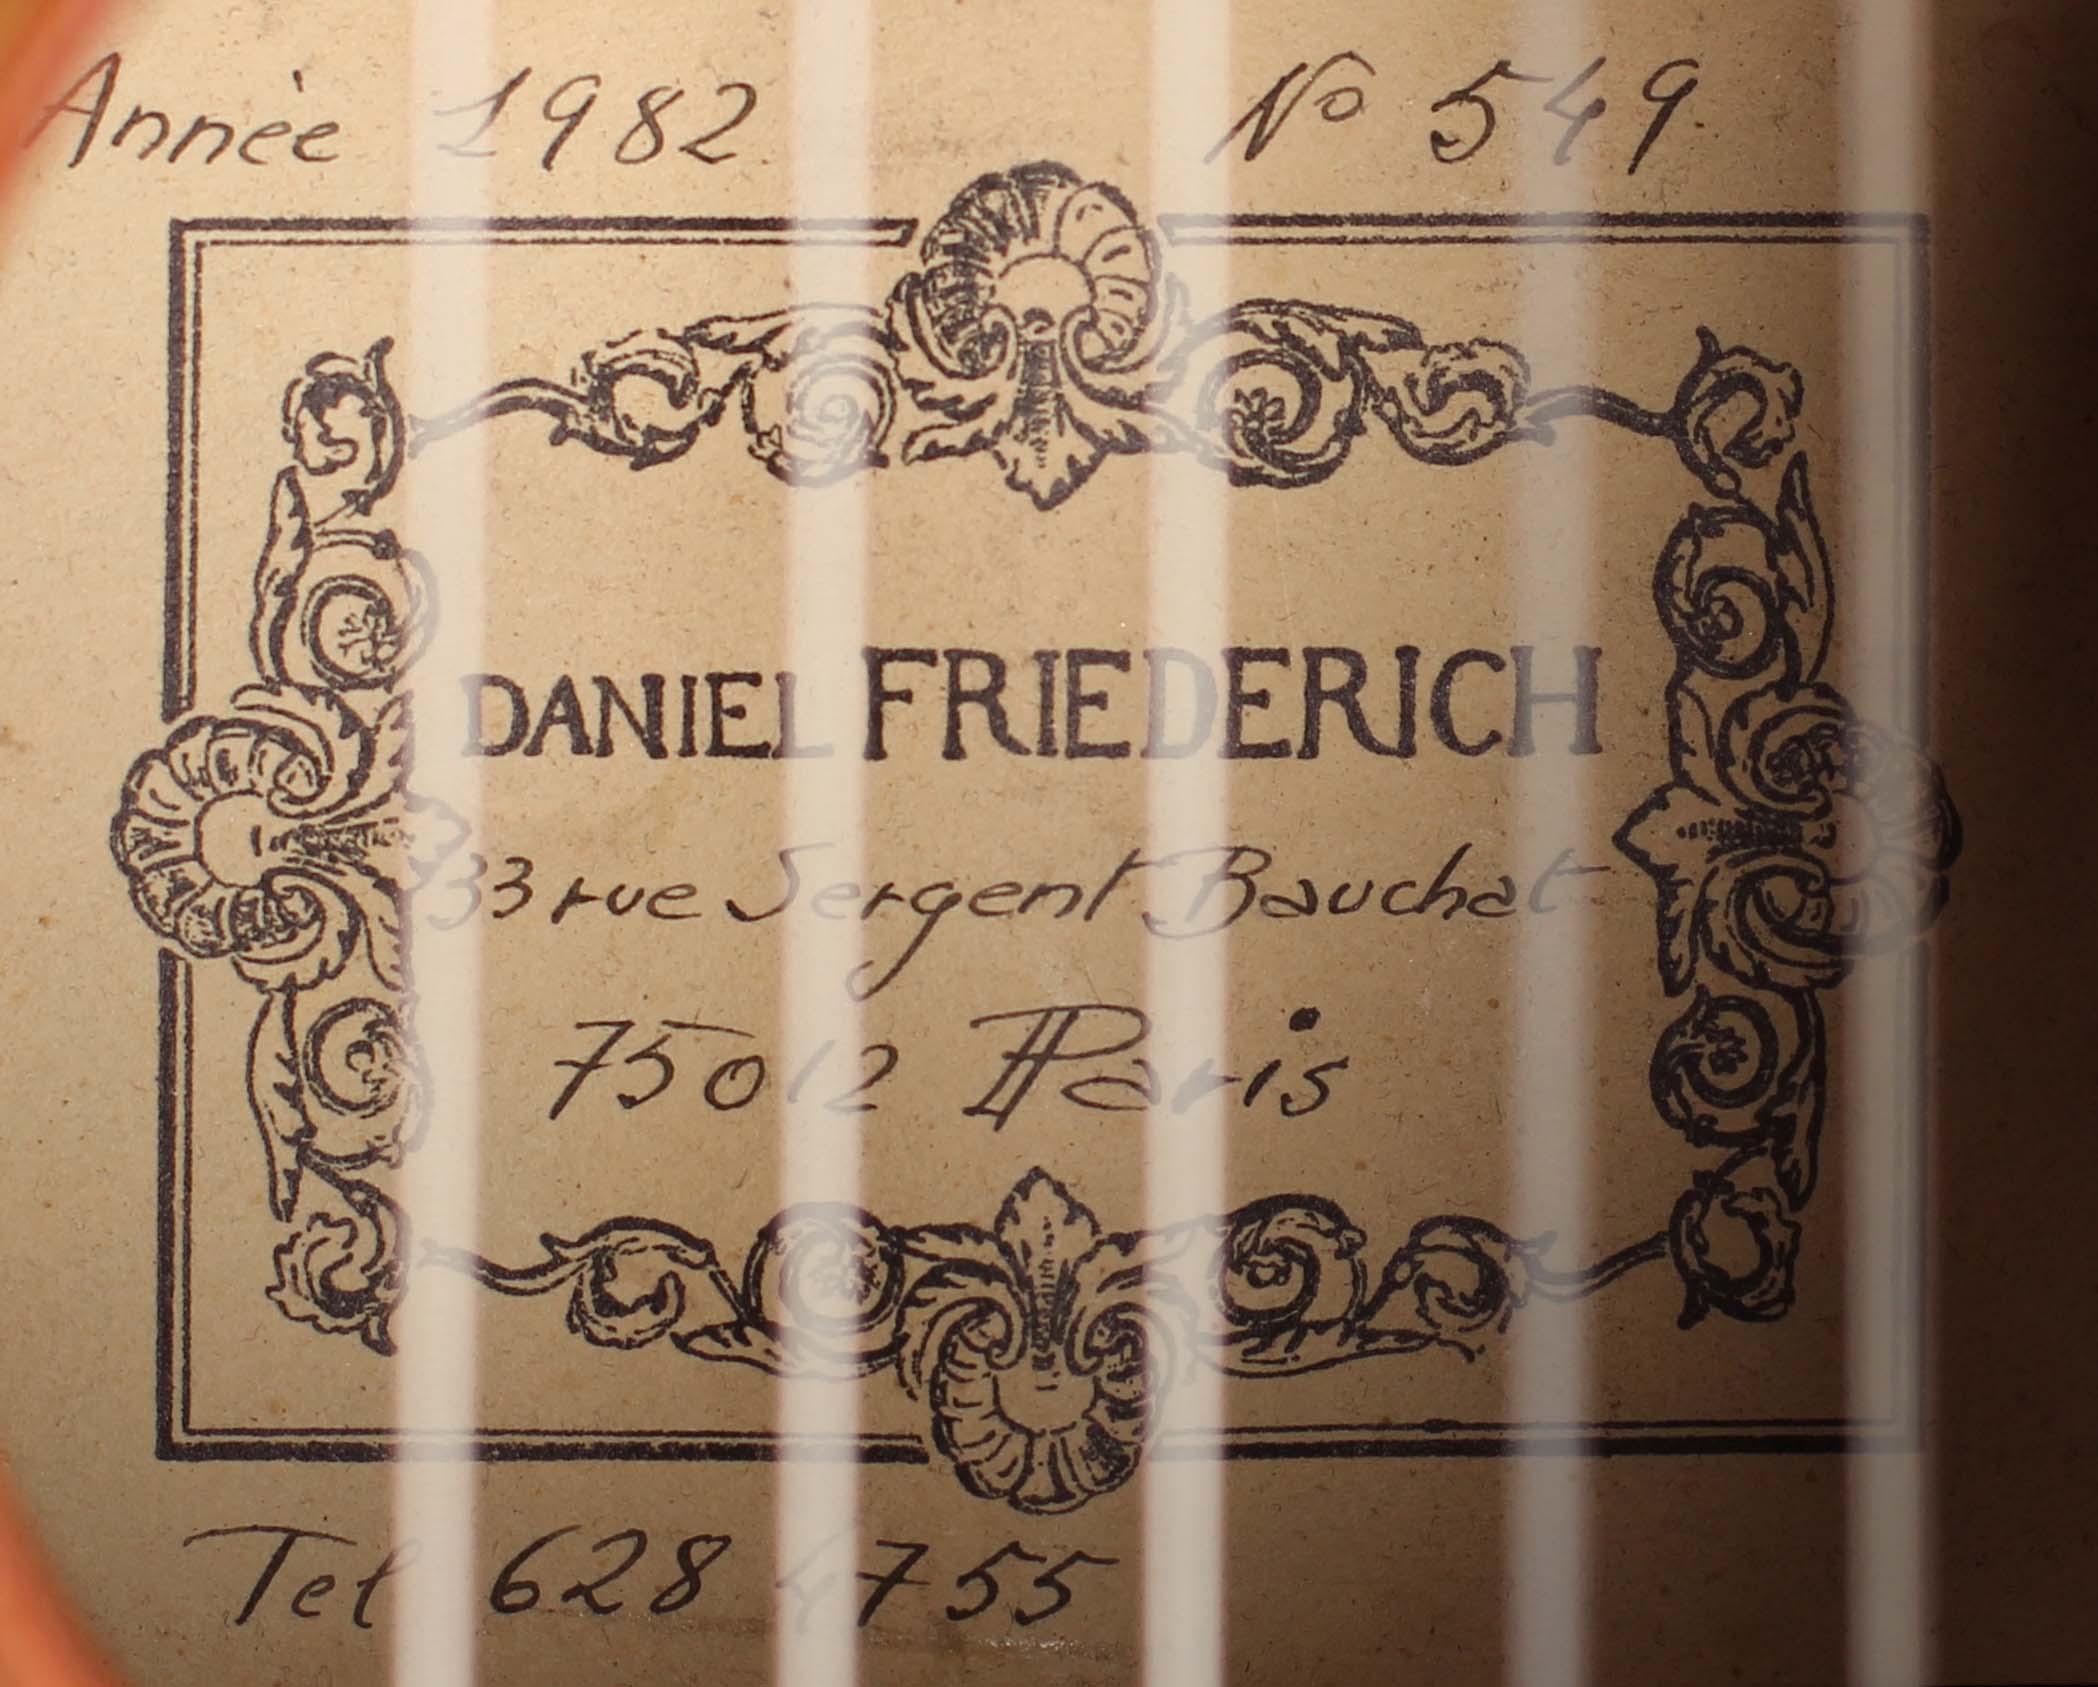 Année 1982 No 549
DANIEL FRIEDERICH
33 rue Sergent Bauchat
75012 Paris
Tel 628 4755